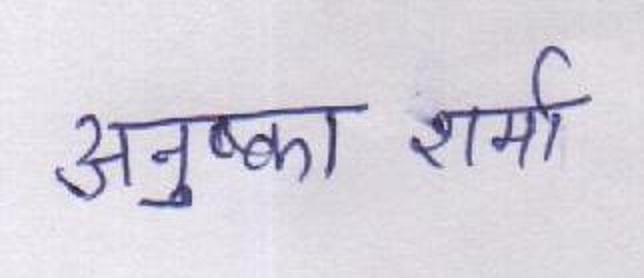 अनुष्का शर्मा